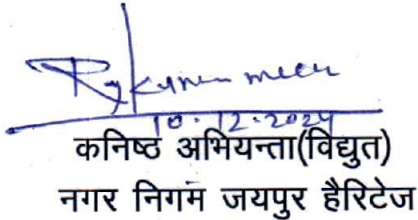 10.12.2024
कनिष्ठ अभियन्ता(विद्युत)
नगर निगम जयपुर हैरिटेज